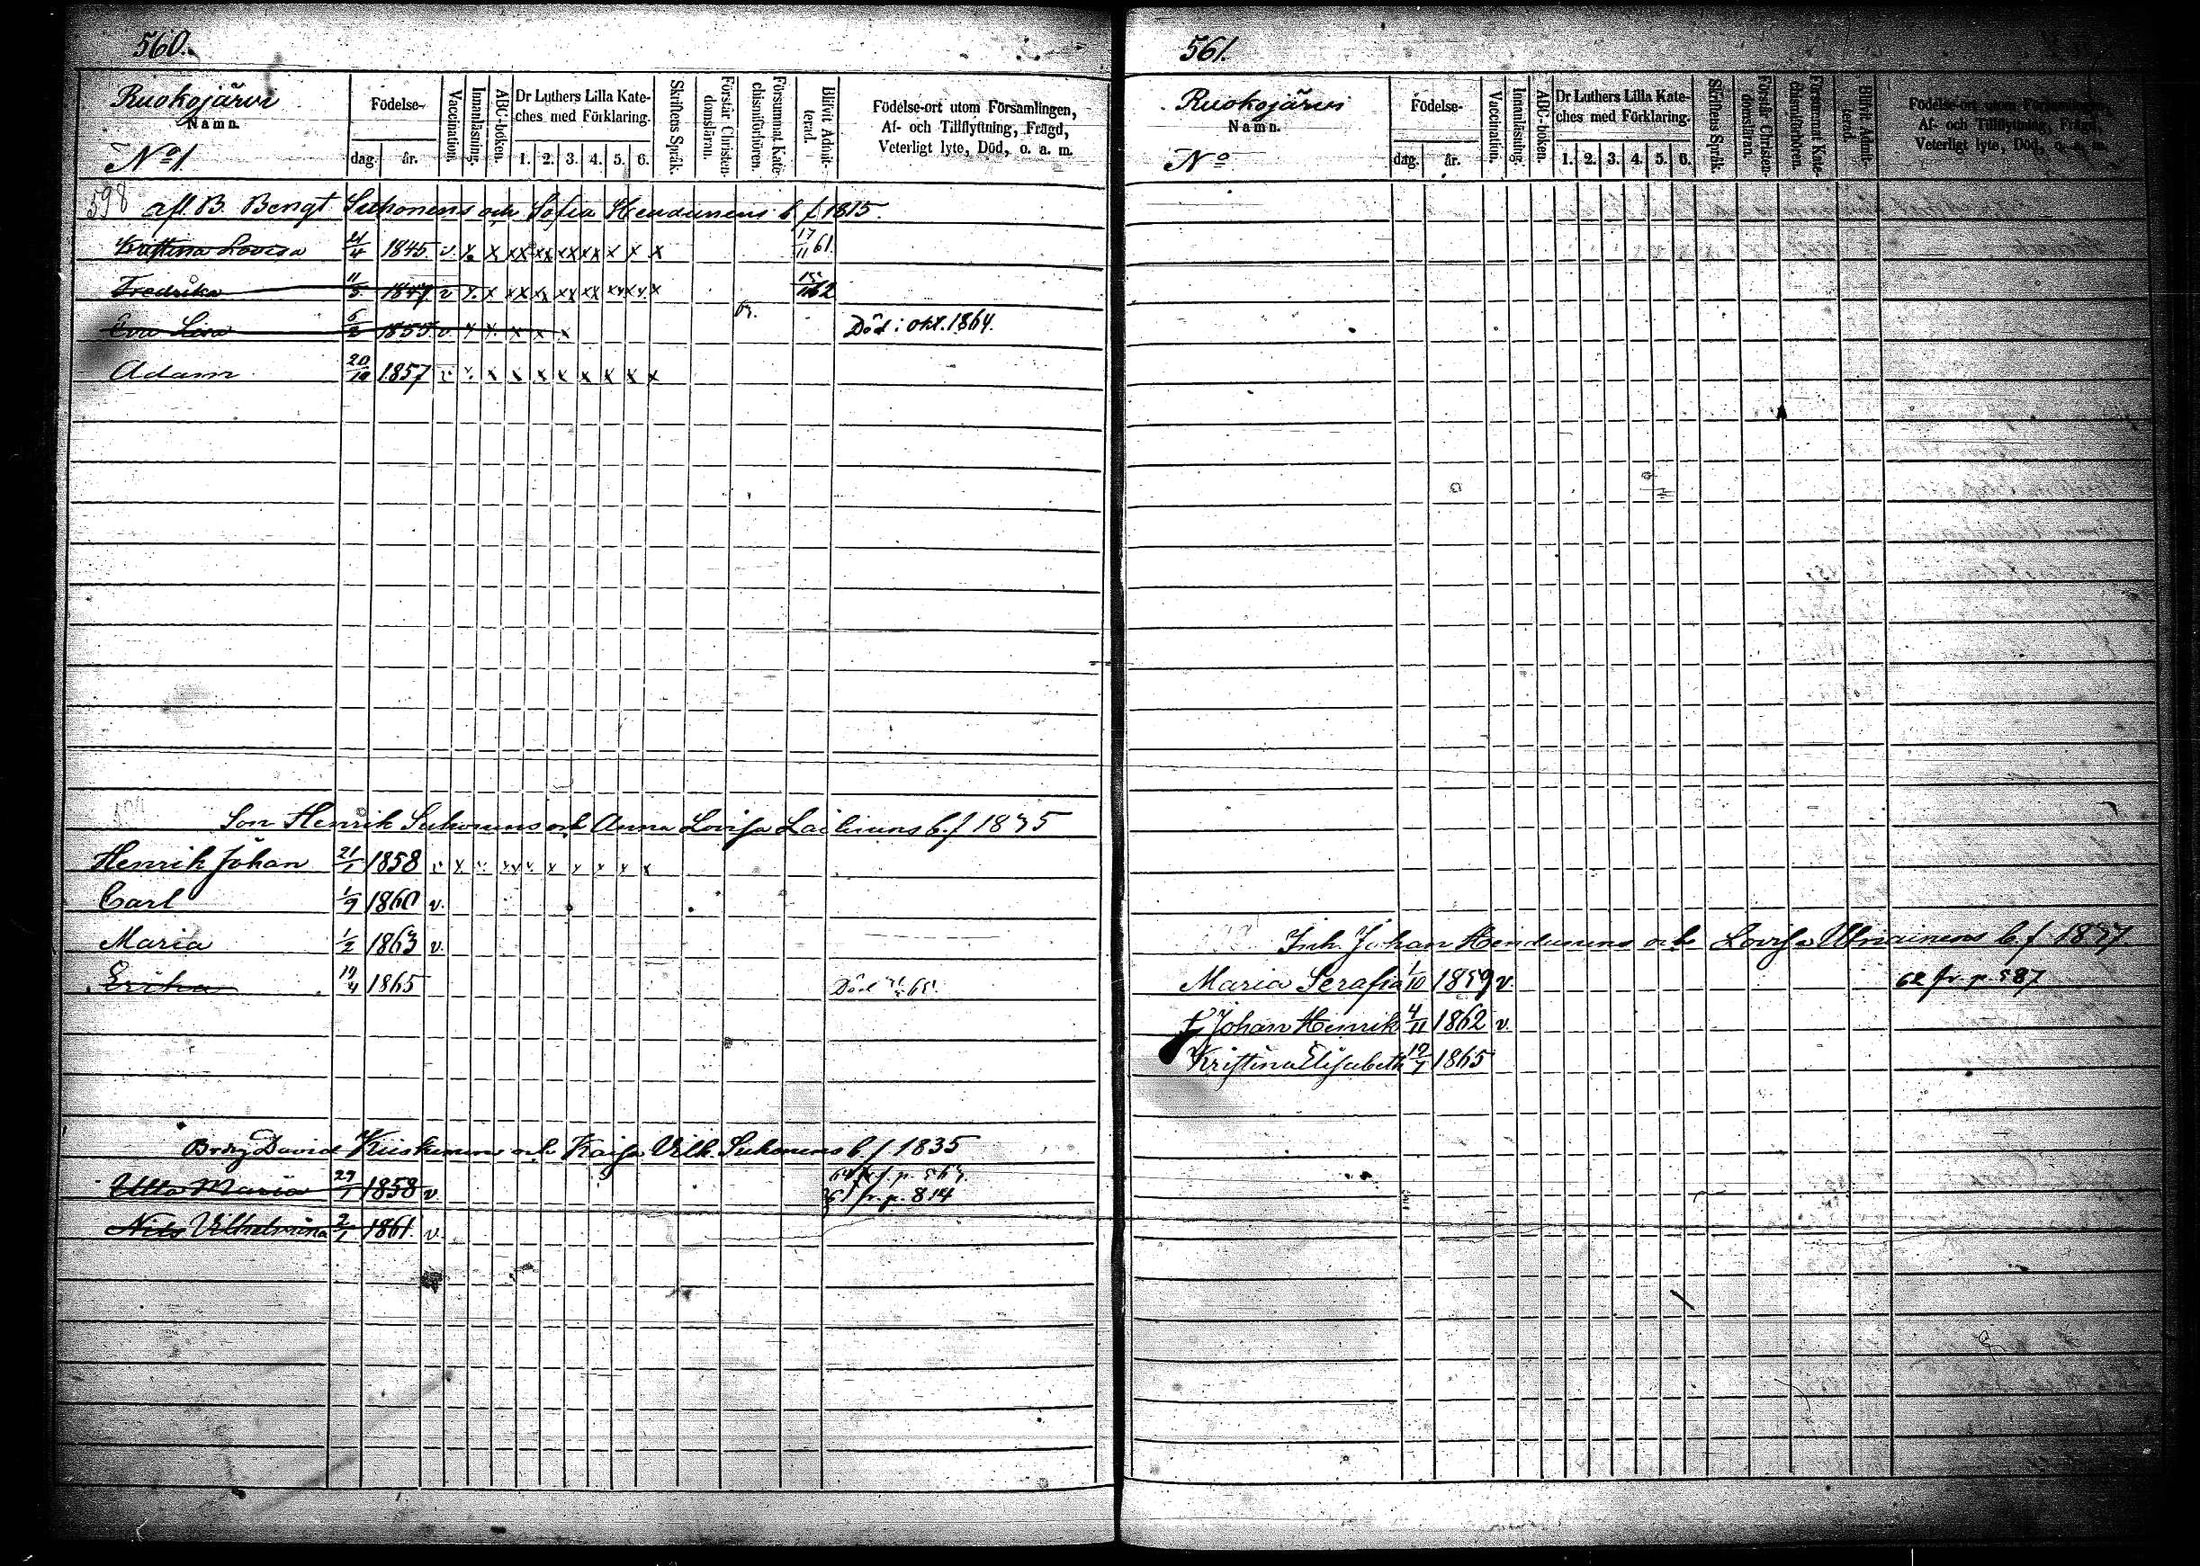 560.
Ruokojärvi
Namn.
No 1.
Födelse-
dag. år.
Vaccination.
Innanläsning.
ABC-boken.
Dr Luthers Lilla Kate-
ches med Förklaring.
1. 2. 3. 4. 5. 6.
Skriftens Språk.
Förstår Christen-
domsläran.
Försummat Kate-
chismiförhören.
Blifvit Admit-
terad.
Födelse-ort utom Församlingen,
Af- och Tillflyttning, Frägd,
Veterligt lyte, Död, o. a. m.
598 afl. B. Bengt Suhonens och Sofia b. f 1815.
Kristina Lovisa 1845 v. x x xx xx xx xx x x x 17/11 61.
Fredrika 11/5 1847 v x. x xx xx xx xx xx x. x 62
Eva Lisa 1855. v. x x. x x x Död i okt. 1864.
Adam 20/10 1857 v x. x x x x x x x x
Son Henrik Suhonens och Anna Lovisa b. f 1835
Henrik Johan 21/1 1858 v x x. xx x. x x x x x
Carl 1/9 1860 v.
Maria 1/2 1863 v.
Erika 19/4 1865 Död
David Kiiskinens och Kaisa Vilh. Suhonens b. f 1835
Ulla Maria 27/1 1858 v fr. p. 814
Nils Vilhelmina 2/1 1861. v.
561.
Ruokojärvi
Namn.
No
Födelse-
dag. år.
Vaccination.
Innanläsning.
ABC-boken.
Dr Luthers Lilla Kate-
ches med Förklaring.
1. 2. 3. 4. 5. 6.
Skriftens Språk.
Förstår Christen-
domsläran.
Försummat Kate-
chismiförhören.
Blifvit Admit-
terad.
Födelse-ort utom Församlingen,
Af- och Tillflyttning, Frägd,
Veterligt lyte, Död, o. a. m.
Inh. Johan och Lovisa b. f 1837
Maria Serafia 1/10 1859 v. 62 fr. p. 587
Johan Henrik 4/11 1862 v.
Kristina Elisabeth 1865